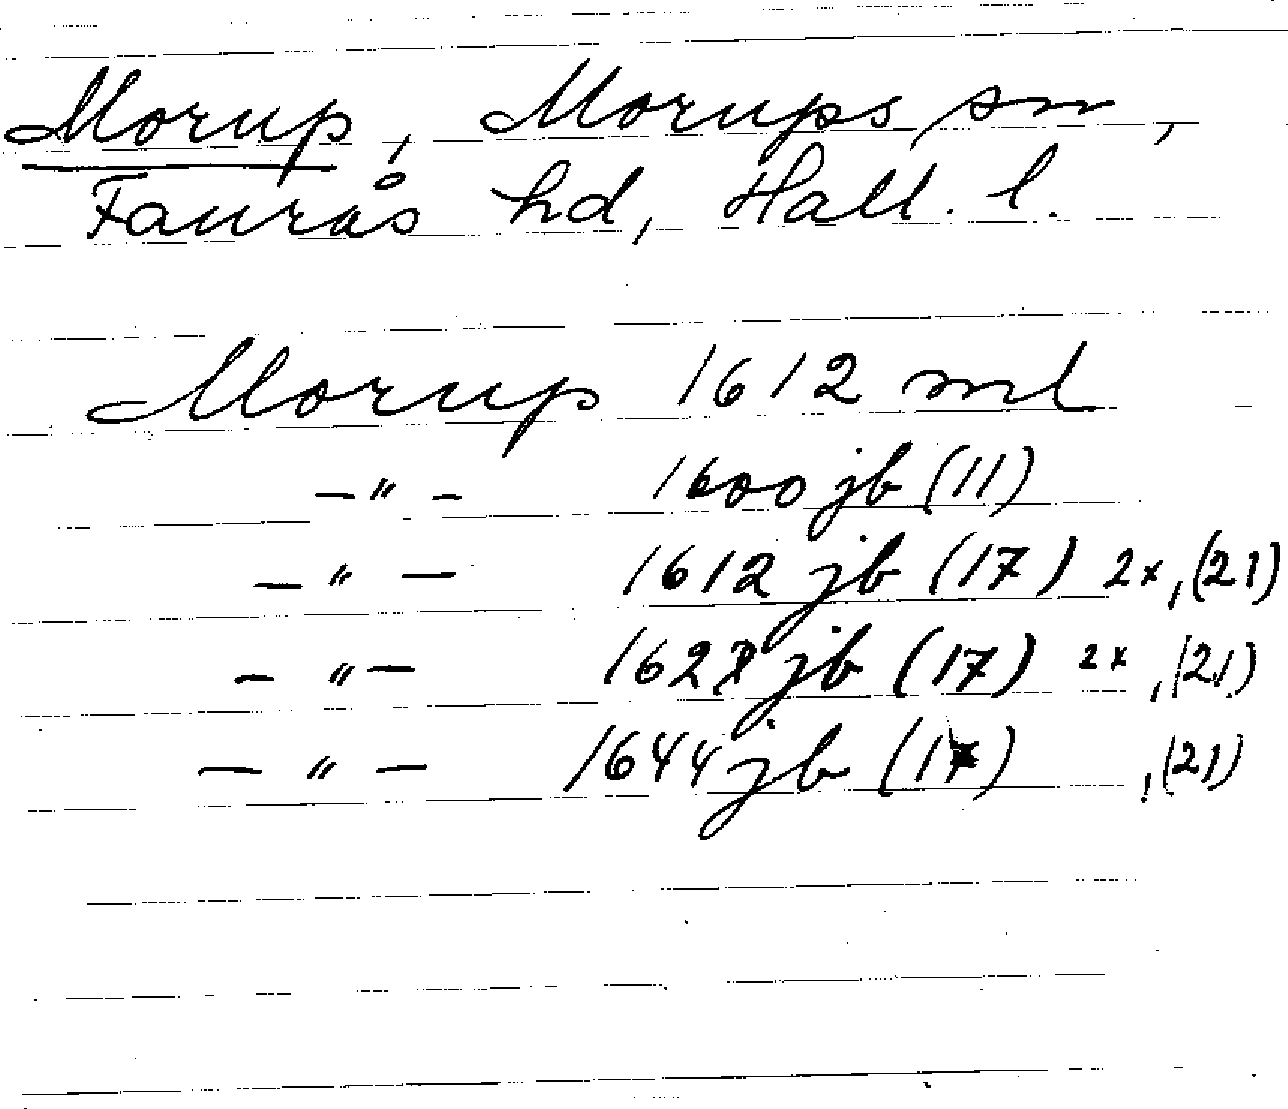 Morup, Morups sn,
Faurås hd, Hall. l.
Morup 1612 ml
—"— 1600 jb (11)
—"— 1612 jb (17) 2x, (21)
—"— jb (17) 2x, (21)
—"— 1644 jb (17), (21)